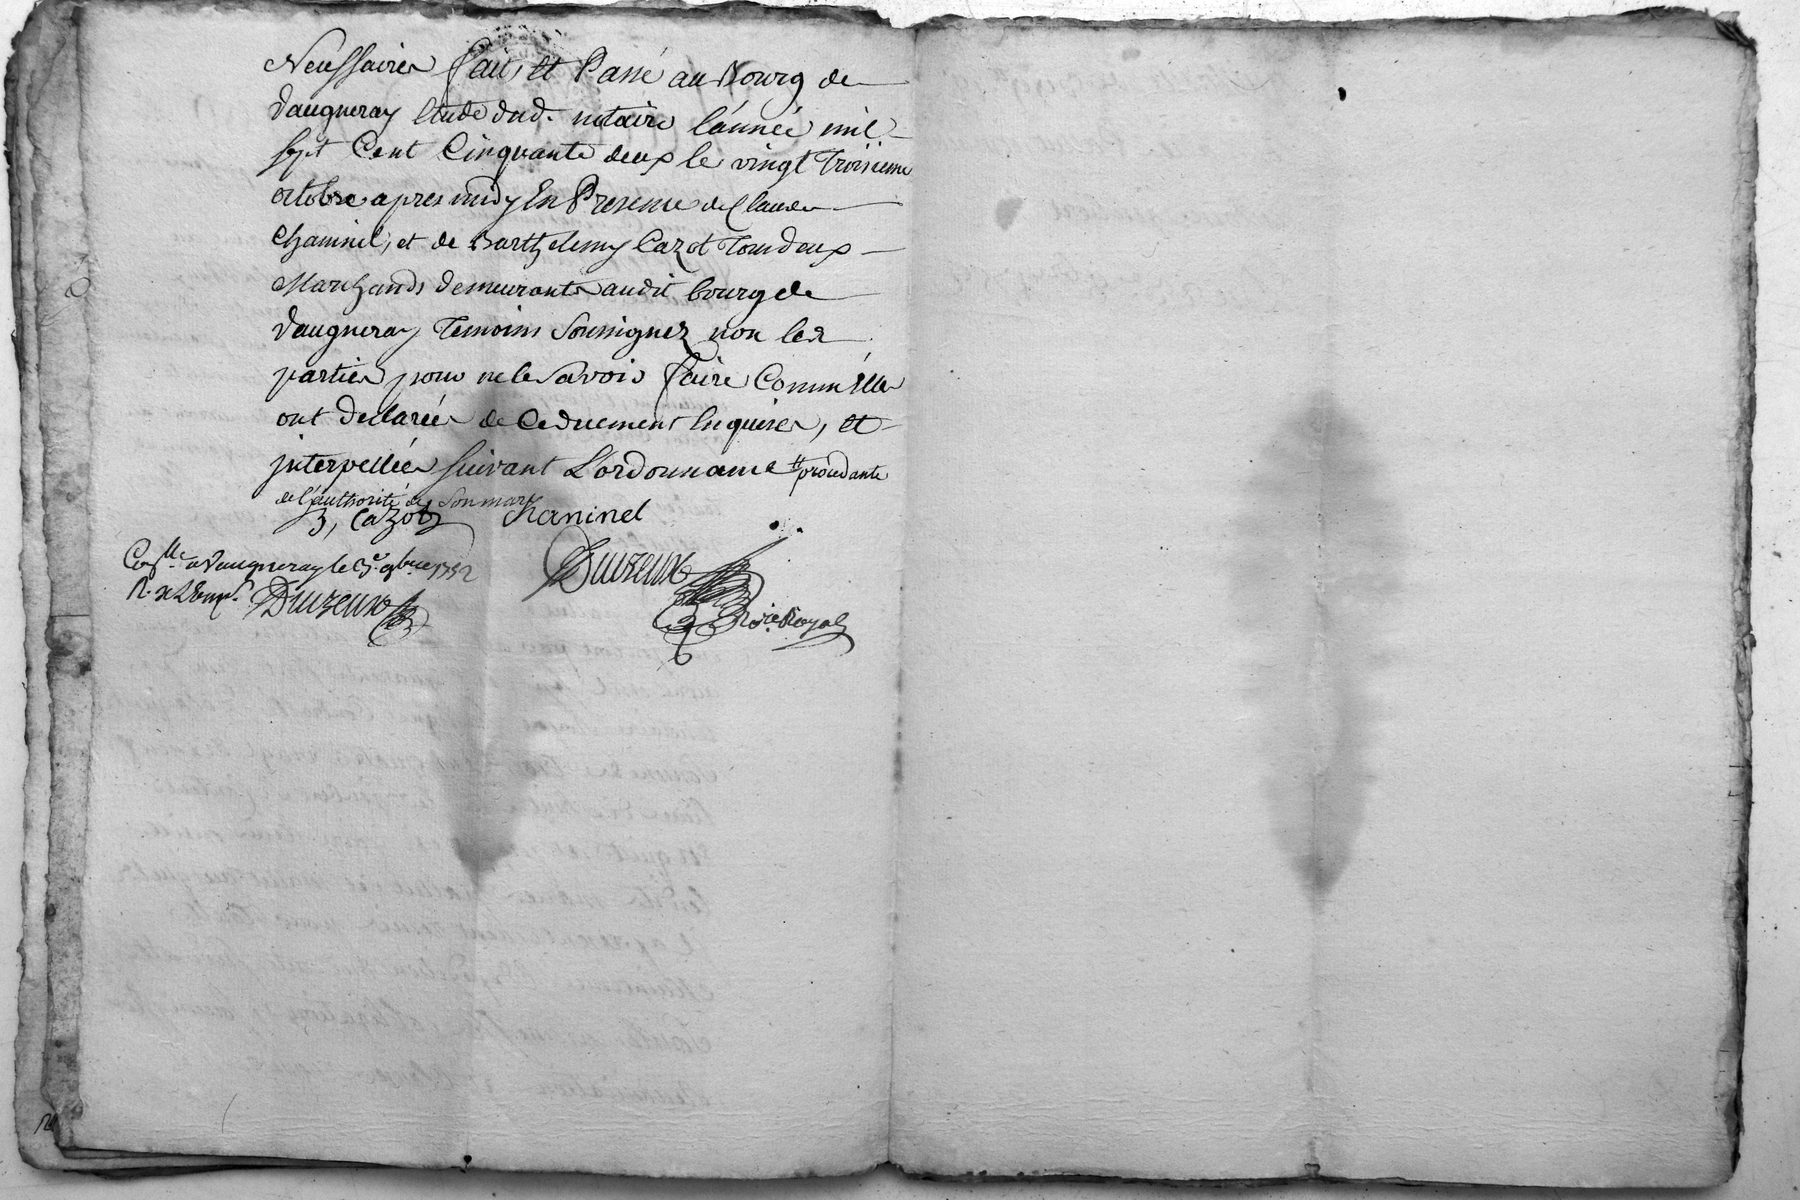 Necessaires fait, et Passé au Bourg de
vaugneray Etude dud. notaire l'année mil
sept Cent Cinquante deux le vingt troisieme
octobre apres midy En Presence de Claude
Chaninel, et de Barthelemy Cazot Tous deux
Marchands demeurants audit bourg de
vaugneray Temoins soussignez non les
parties pour ne le savoir faire Comm'elles
ont declarées de Ce duement Enquises, et
interpellées suivant L'ordonnance # procedante
de l'authorité de son mary
B, Cazot Chaninel
Con.lle a Vaugneray le 3.e 9bre 1752
Duizeux
R. Duizeux
No.re Royal